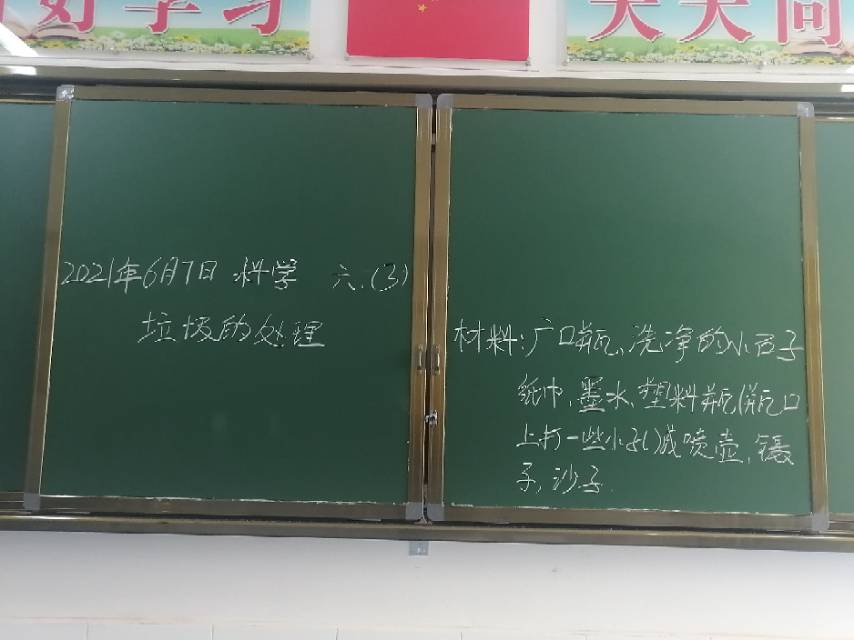 好学习
天天向
2021年6月7日 科学 六.(3)
垃圾的处理
材料:广口瓶、洗净的小石子
纸巾、墨水、塑料瓶(瓶口
上打一些小孔)或喷壶、镊
子,沙子.